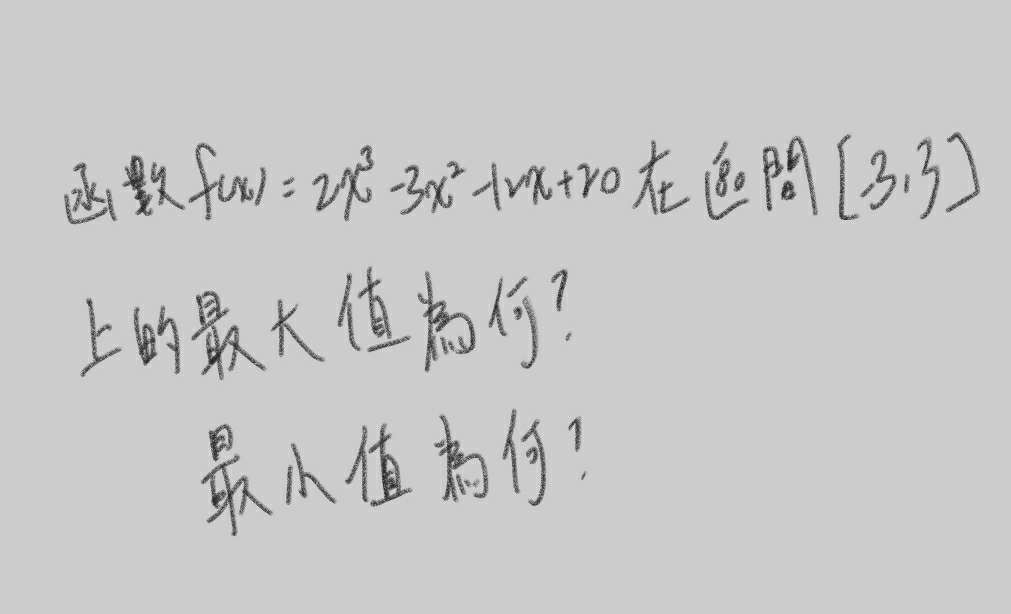 函數 f(x) = 2x³ -3x² -12x+20 在區間 [-3,3]
上的最大值為何?
最小值為何?